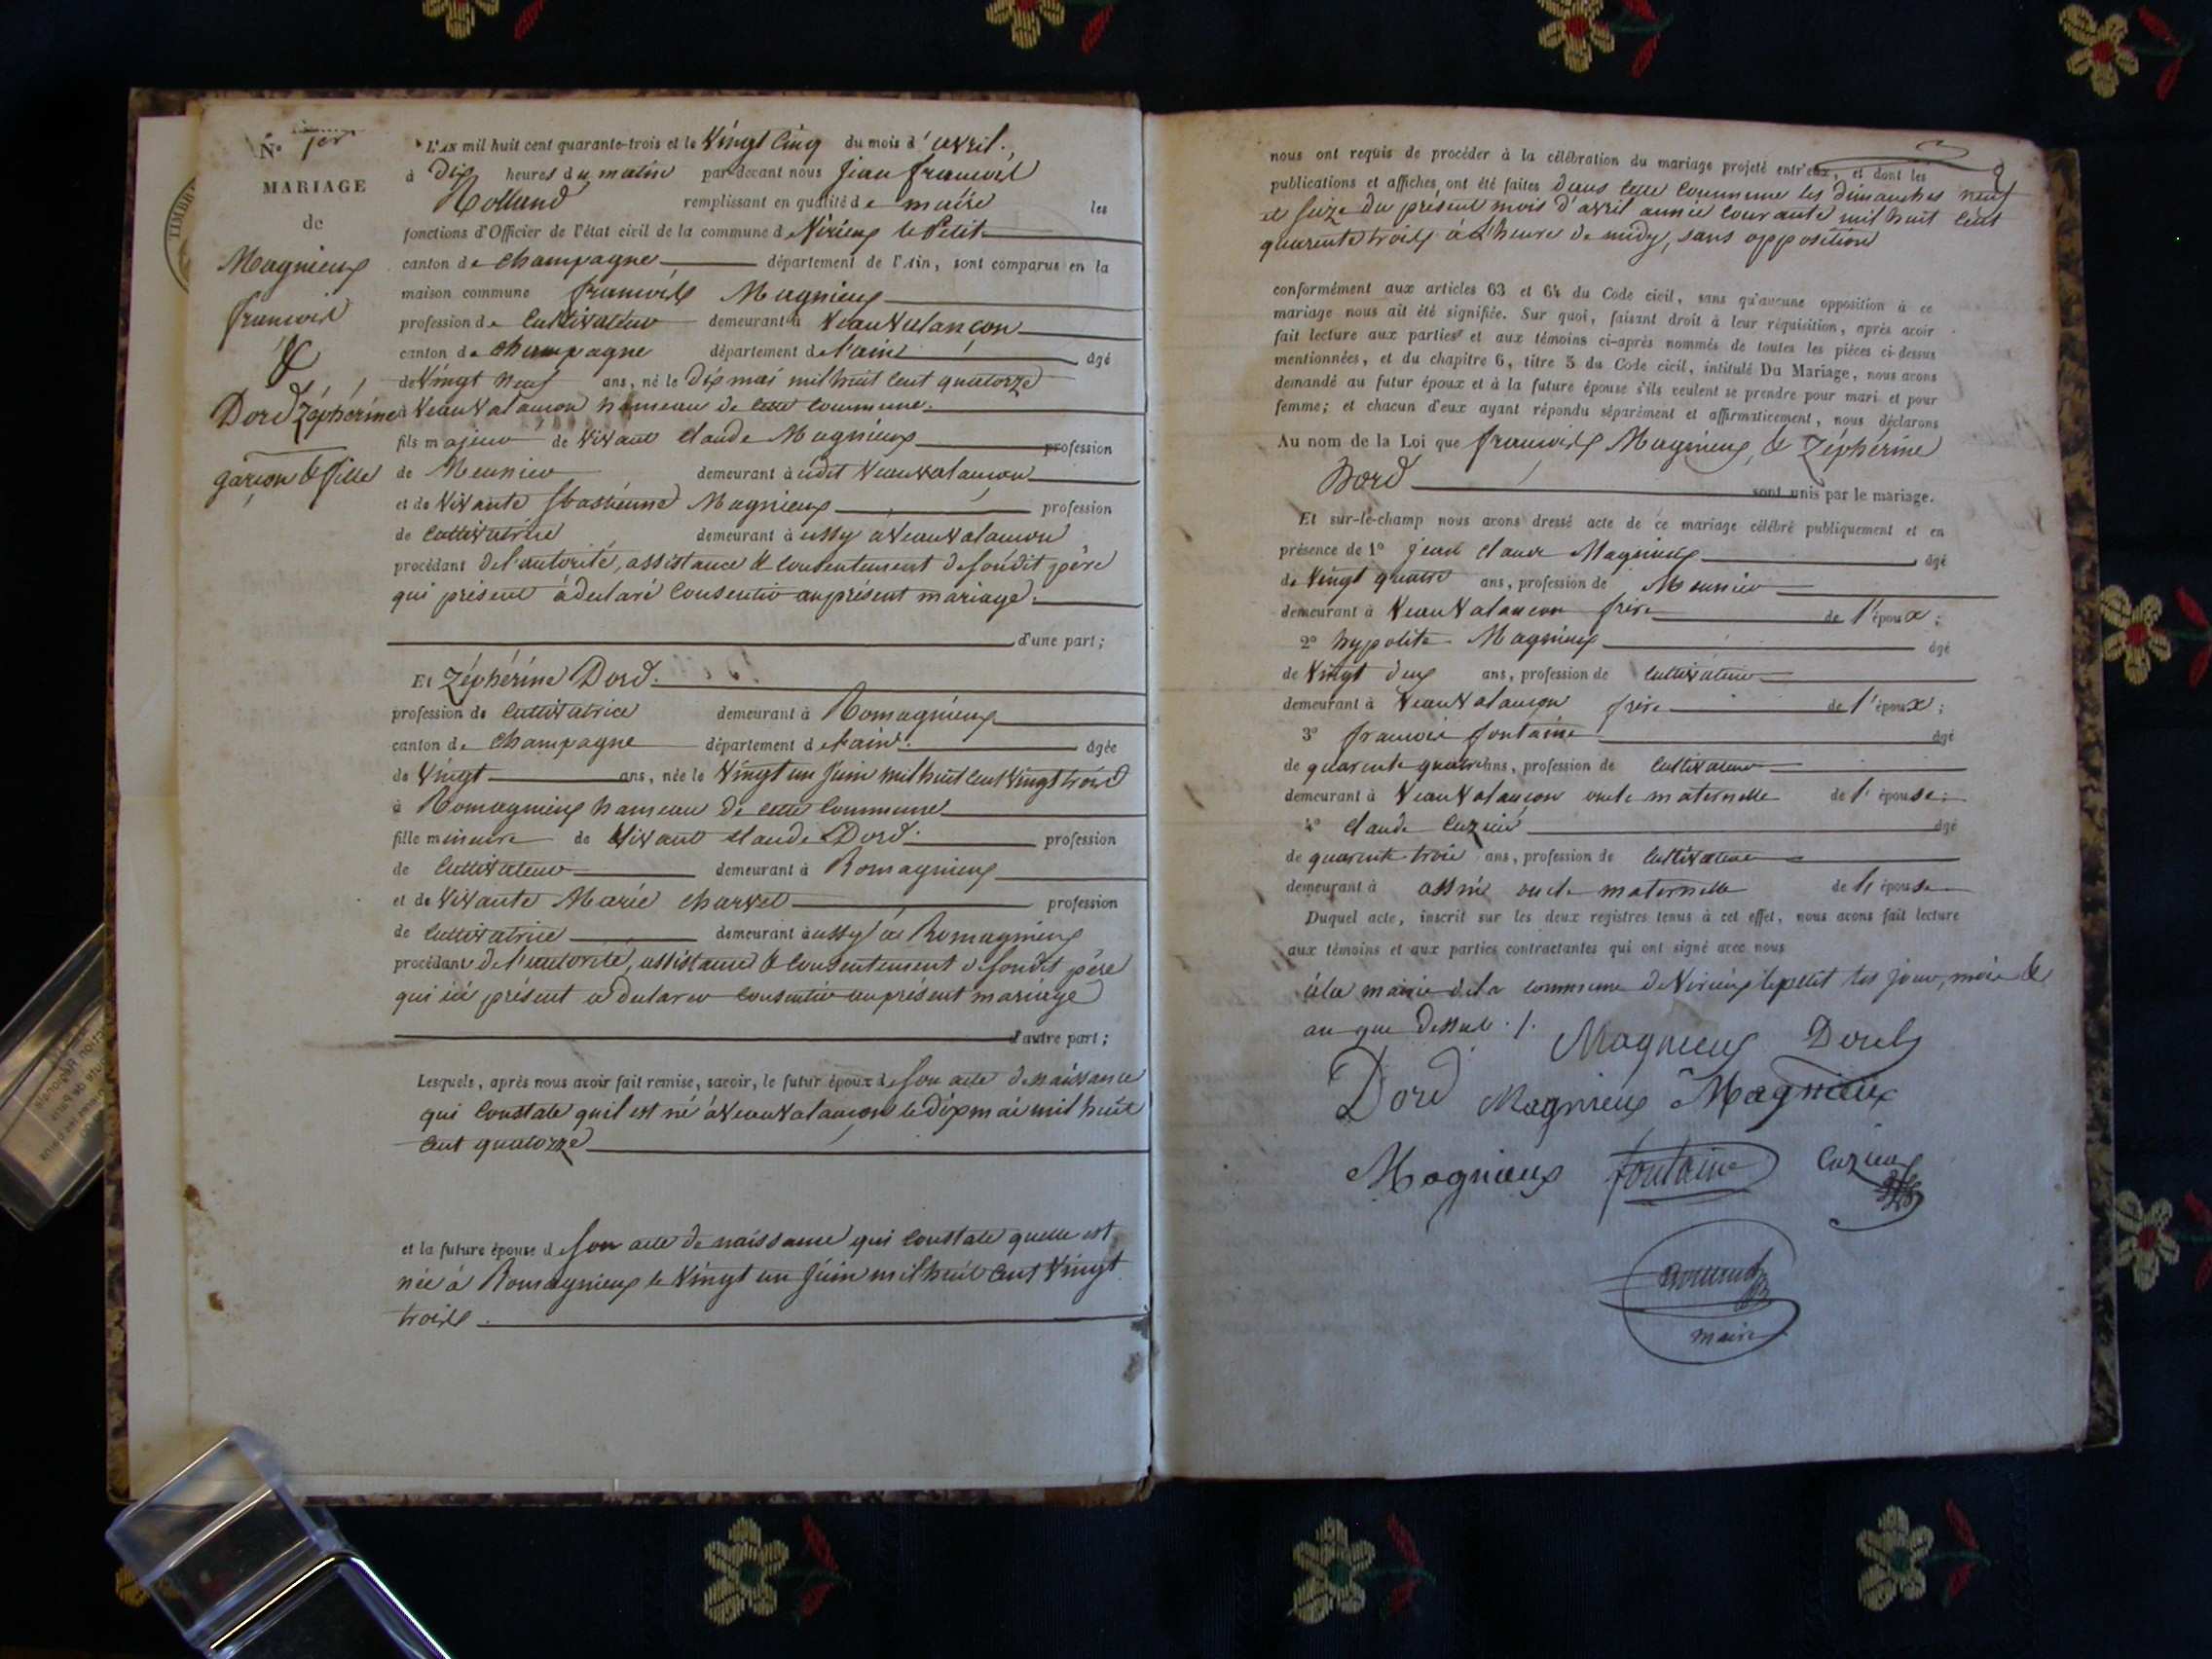 N° 1er
MARIAGE
de
Magnieux
francois
&
Dord Zéphérine
garçon & fille
TIMBRE
L'AN mil huit cent quarante-trois et le Vingt Cinq du mois d'avril.
à Dix heures du matin par-devant nous Jean francois
Rolland remplissant en qualité de maire les
fonctions d'Officier de l'état civil de la commune de Virieux le Petit
canton de Champagne département de l'Ain, sont comparus en la
maison commune francois Magnieux
profession de Cultivateur demeurant à Veauvalançon
canton de Champagne département de l'ain âgé
de Vingt neuf ans, né le Dix mai mil huit Cent quatorze
à Veauvalancon hameau de cette Commune.
fils majeur de Vivant Claude Magnieux profession
de Meunier demeurant à udit Veauvalancon
et de Vivante Sbastienne Magnieux profession
de Cultivatrice demeurant à ussy à Veauvalancon
procédant de l'autorité, assistance & Consentement de sondit père
qui présent à déclaré Consentir au présent mariage.
d'une part;
Et Zéphérine Dord.
profession de Cultivatrice demeurant à Romagnieux
canton de Champagne département de l'ain. âgée
de Vingt ans, née le Vingt un Juin mil huit Cent Vingt trois
à Romagnieux hameau de cette Commune
fille mineure de Vivant Claude Dord. profession
de Cultivateur demeurant à Romagnieux
et de Vivante Marie Charvet profession
de Cultivatrice demeurant à ussy à Romagnieux
procédant de l'autorité, assistance & Consentement de sondit père
qui ici présent a déclarer Consentir au présent mariage
d'autre part;
Lesquels, après nous avoir fait remise, savoir, le futur époux de son acte de naissance
qui Constate quil est né à Veauvalancon le Dix mai mil huit
Cent quatorze
et la future épouse de son acte de naissance qui Constate quelle est
née à Romagnieux le Vingt un Juin mil huit Cent Vingt
trois.
nous ont requis de procéder à la célébration du mariage projeté entr'eux, et dont les
publications et affiches ont été faites Dans cette Commune les dimanches neuf
et seize du présent mois d'avril année Courante mil huit Cent
quarente trois à L'heure de midy, sans opposition
conformément aux articles 63 et 64 du Code civil, sans qu'aucune opposition à ce
mariage nous ait été signifiée. Sur quoi, faisant droit à leur réquisition, après avoir
fait lecture aux parties et aux témoins ci-après nommés de toutes les pièces ci-dessus
mentionnées, et du chapitre 6, titre 5 du Code civil, intitulé Du Mariage, nous avons
demandé au futur époux et à la future épouse s'ils veulent se prendre pour mari et pour
femme; et chacun d'eux ayant répondu séparément et affirmativement, nous déclarons
Au nom de la Loi que francois Magnieux, & Zéphérine
Dord sont unis par le mariage.
Et sur-le-champ nous avons dressé acte de ce mariage célébré publiquement et en
présence de 1° jean Claude Magnieux âgé
de Vingt quatre ans, profession de Meunier
demeurant à Veauvalancon frère de l'époux;
2° hypolite Magnieux âgé
de Vingt deux ans, profession de Cultivateur
demeurant à Veauvalancon frère de l'époux;
3° francois fontaine âgé
de quarente quatre ans, profession de Cultivateur
demeurant à Veauvalancon oncle maternelle de l'épouse;
4° Claude Cuzin âgé
de quarente trois ans, profession de Cultivateur
demeurant à oncle maternelle de l'épouse
Duquel acte, inscrit sur les deux registres tenus à cet effet, nous avons fait lecture
aux témoins et aux parties contractantes qui ont signé avec nous
à la mairie de la commune de Virieux le petit les jour, mois &
an que Dessus. /.
Magnieux Dord
Dord Magnieux Magnieux
Magnieux fontaine Cuzin
Rolland
maire